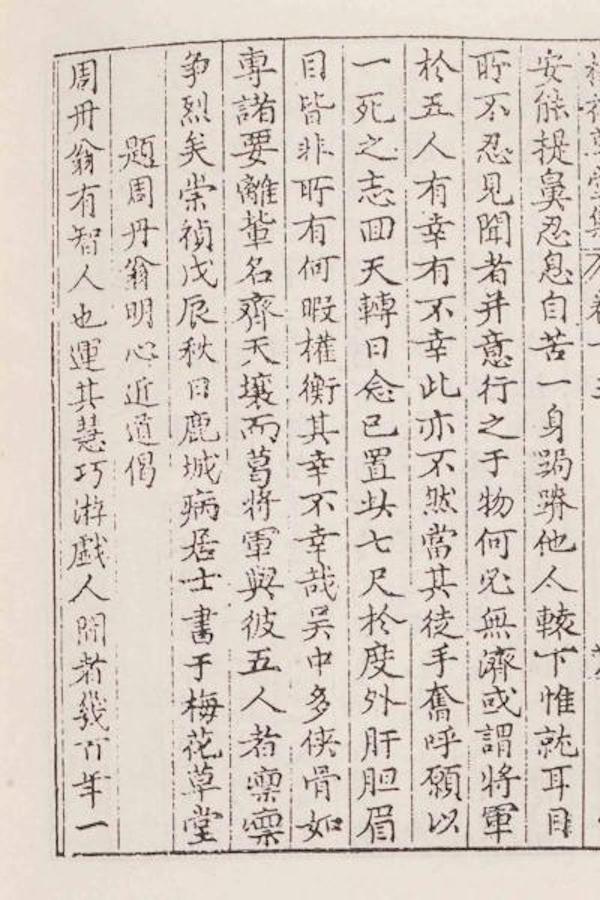 安能捉鼻忍息自苦一身跼蹐他人轅下惟就耳目
所不忍見聞者并意行之于物何必無濟或謂將軍
於五人有幸有不幸此亦不然當其徒手奮呼願以
一死之志回天轉日念已置此七尺於度外肝胆眉
目皆非所有何暇權衡其幸不幸哉吴中多俠骨如
專諸要離輩名齊天壤而葛將軍與彼五人者凛凛
争烈矣崇禎戊辰秋日鹿城病居士書于梅花草堂
題周丹翁明心近道偈
周丹翁有智人也運其慧巧游戲人間者幾百年一